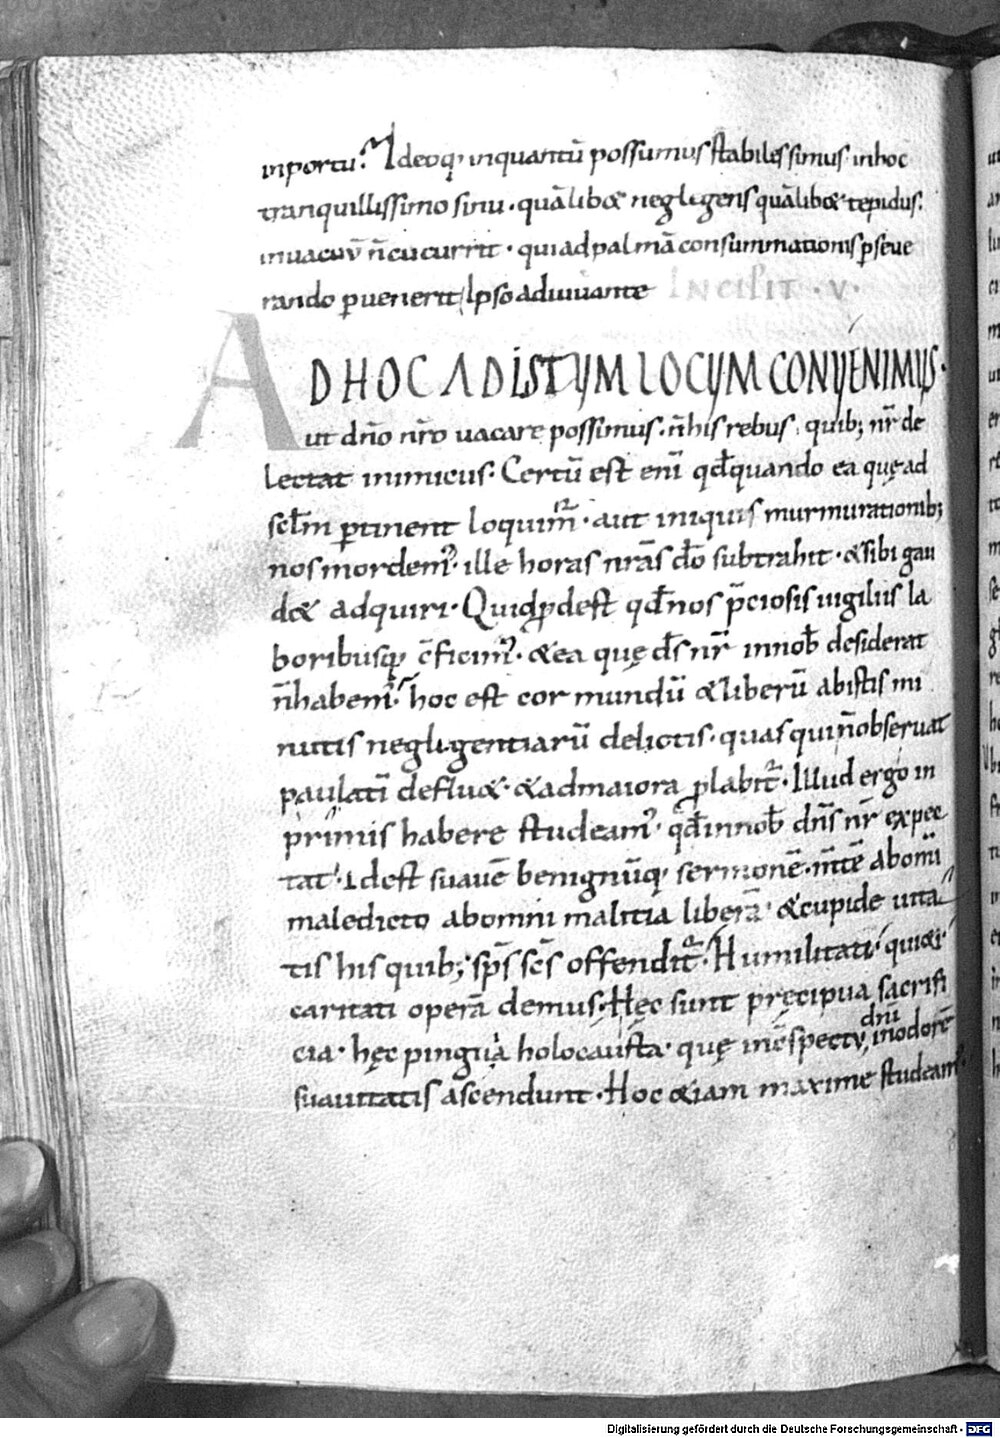 inportu. Ideoq; inquantū possumus stabilessimus inhoc
tranquillissimo sinu. quālib& neglegens quālib& tepidus.
inuacuū n̄ cucurrit. quiadpalmā consummationis p̱seue
rando p̱uenerit. Ipso adiuuante INCIPIT . V .
ADHOC ADISTUM LOCUM CONUENIMUS.
ut dn̄o nr̄o uacare possimus. n̄ his rebus. quib; nr̄ de
lectat inimicus. Certū est enī qđ quando ea quę ad
scłm p̱tinent loquim̄r. aut iniquis murmurationib;
nos mordem'. ille horas nr̄as dō subtrahit. & sibi gau
d& adquiri. Quid p̱dest qđ nos p̄ciosis uigiliis la
boribusq; c̄ficim'. & ea quę ds̄ nr̄ innob̄ desiderat
n̄ habem'. hoc est cor mundū & liberū abistis mi
nutis neglegentiarū delictis. quas qui n̄ obseruat
paulatī deflu& & admaiora p̱labit̄r. Illud ergo in
primis habere studeam'. qđ innob̄ dn̄s nr̄ expec
tat. Idest suauē benignūq; sermonē. m̄tē abomī
maledicto abomni malitia liberā. & cupide uita
tis his quib; sp̄s sc̄s offendit̄r. Humilitati quiaei
caritati operā demus. Hęc sunt pręcipua sacrifi
cia. hęc pinguia holocausta. quę inc̄spectu dnī inodorē
suauitatis ascendunt. Hoc &iam maxime studeam'
Digitalisierung gefördert durch die Deutsche Forschungsgemeinschaft - DFG